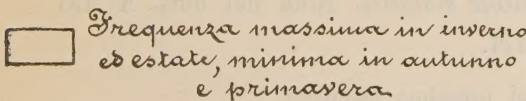 Frequenza massima in inverno
ed estate, minima in autunno
e primavera